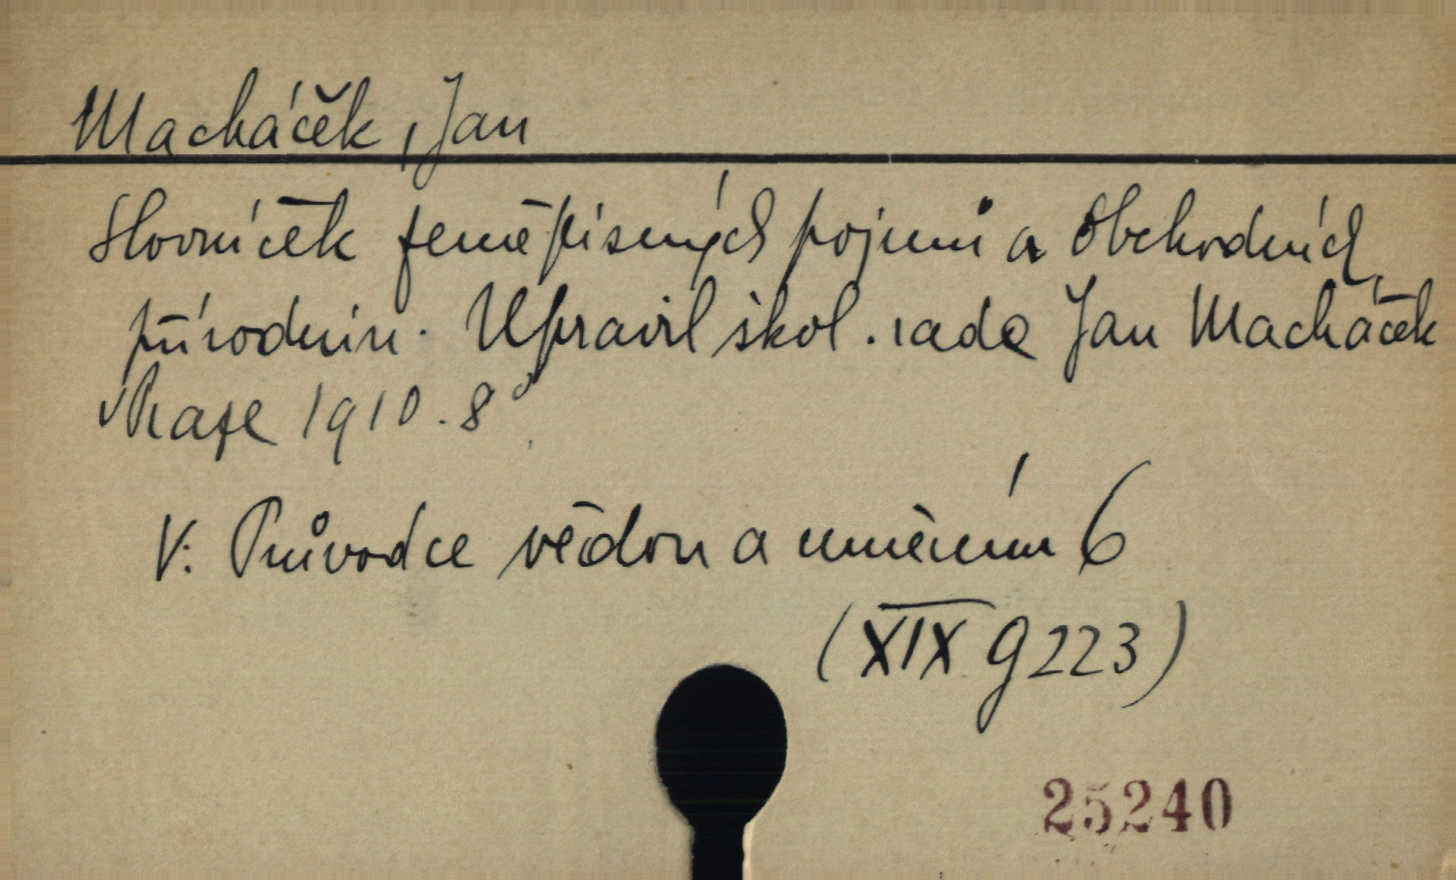 Macháček, Jan
Slovníček zeměpisných pojmů a obchodních
přírodnin. Upravil škol. rada Jan Macháček
v Praze 1910. 8°
V: Průvodce vědou a uměním 6
(XIX g 223)
25240